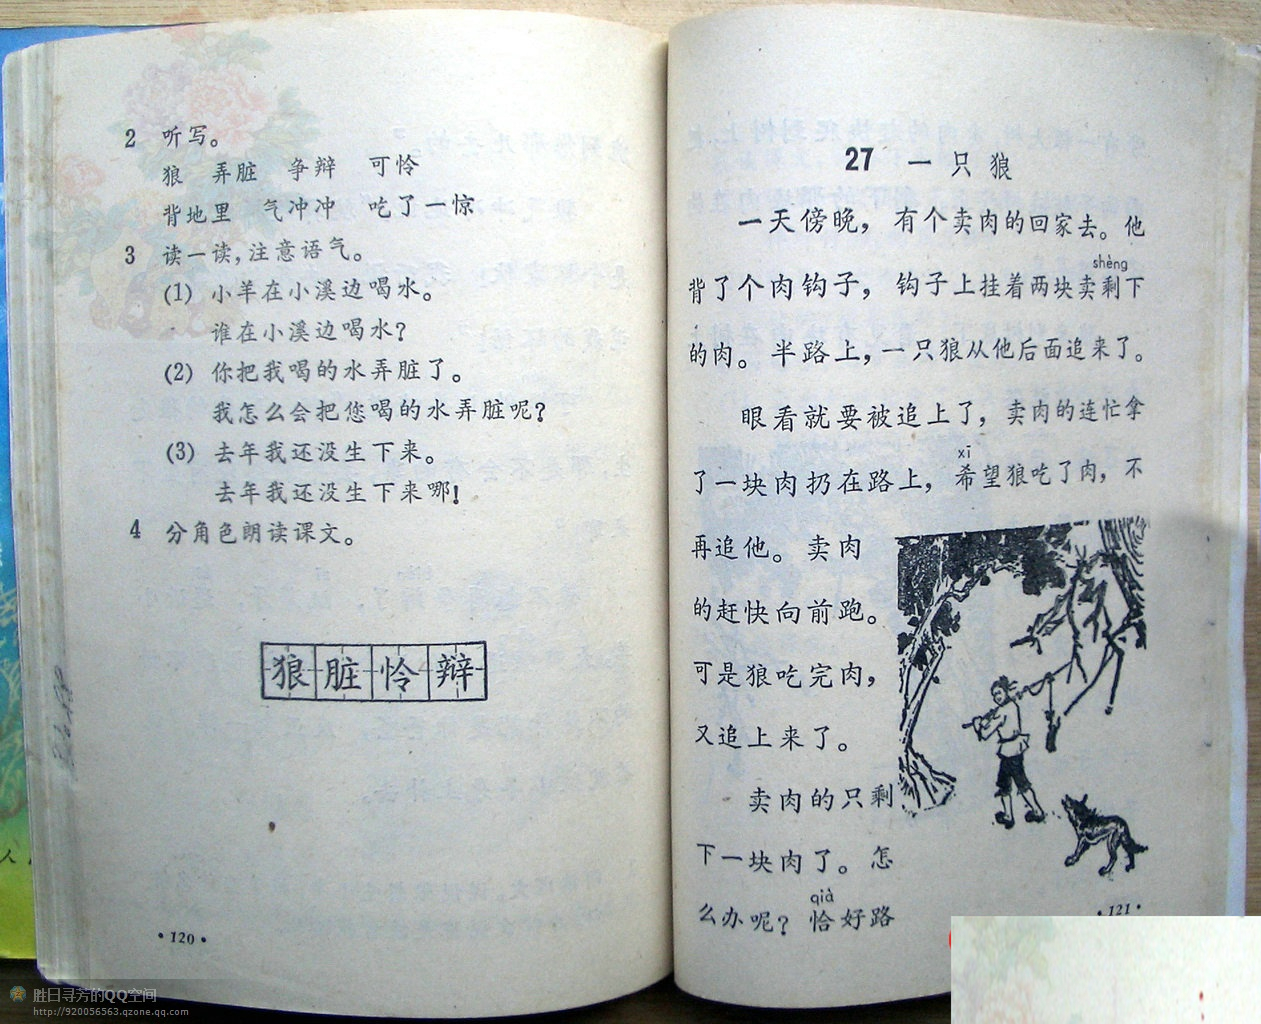 2 听写。
狼 弄脏 争辩 可怜
背地里 气冲冲 吃了一惊
3 读一读,注意语气。
(1) 小羊在小溪边喝水。
谁在小溪边喝水?
(2) 你把我喝的水弄脏了。
我怎么会把您喝的水弄脏呢?
(3) 去年我还没生下来。
去年我还没生下来哪!
4 分角色朗读课文。
狼脏怜辩
·120·
27 一只狼
一天傍晚，有个卖肉的回家去。他
shèng
背了个肉钩子，钩子上挂着两块卖剩下
的肉。半路上，一只狼从他后面追来了。
眼看就要被追上了，卖肉的连忙拿
xī
了一块肉扔在路上，希望狼吃了肉，不
再追他。卖肉
的赶快向前跑。
可是狼吃完肉，
又追上来了。
卖肉的只剩
下一块肉了。怎
qià
么办呢？恰好路
·121·
胜日寻芳的QQ空间
http://920056563.qzone.qq.com